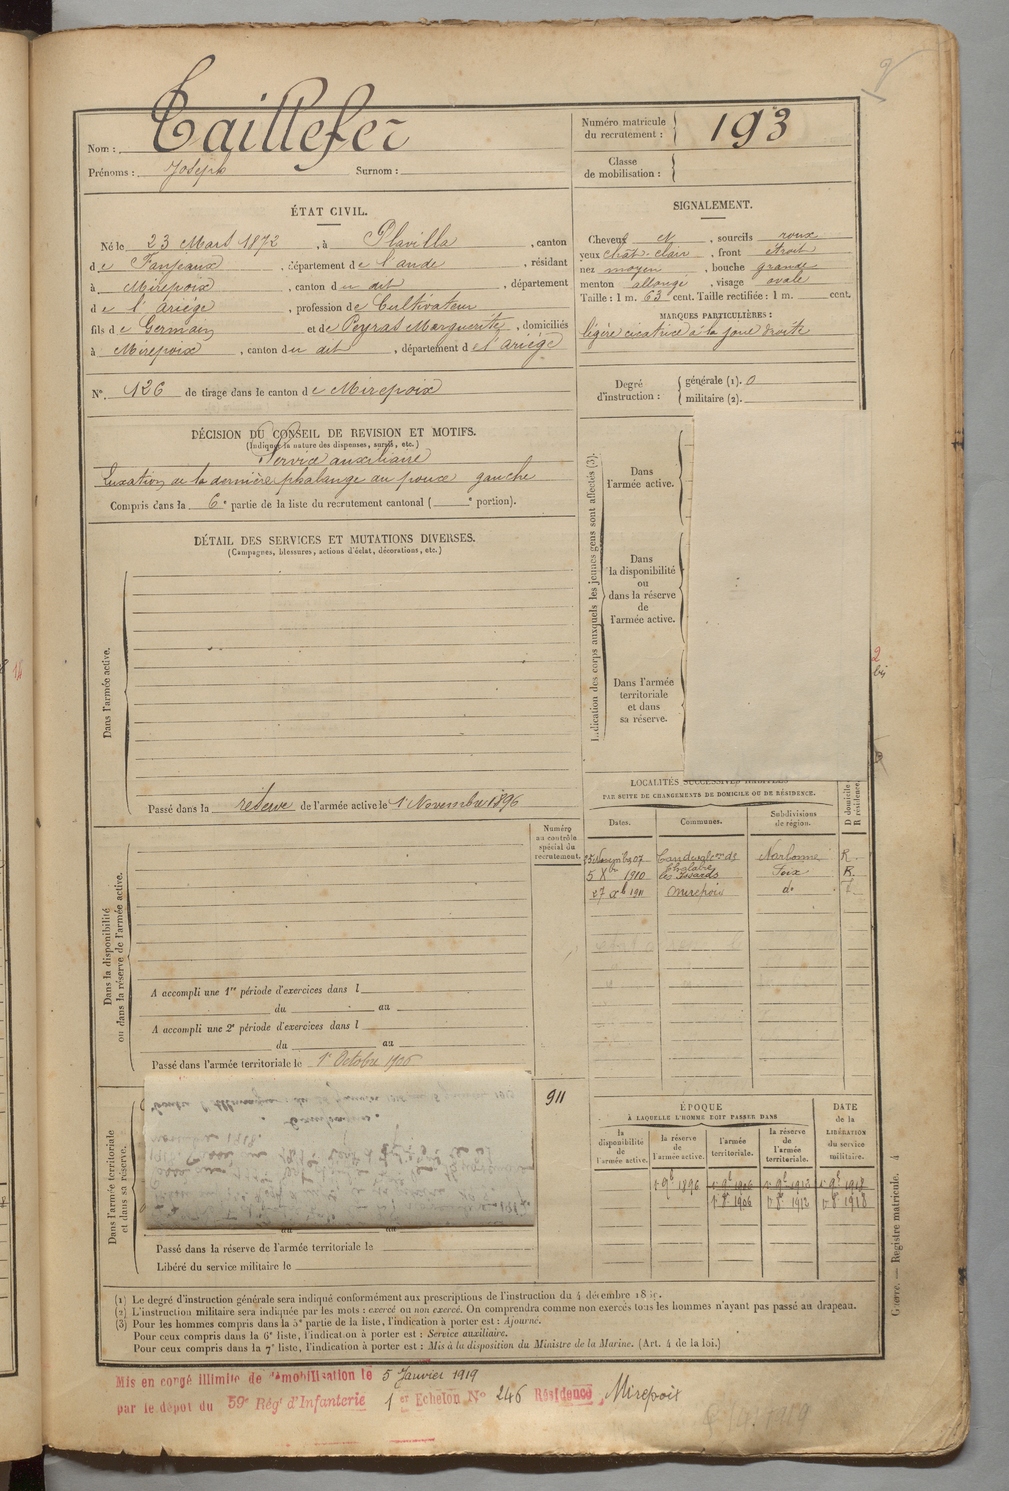 Nom : Taillefer
Prénoms : Joseph Surnom :
Numéro matricule du recrutement : 193
Classe de mobilisation :
ÉTAT CIVIL.
Né le 23 Mars 1872, à Plavilla, canton
de Fanjeaux, département de l'aude, résidant
à Mirepoix, canton du dit, département
de l'ariège, profession de Cultivateur
fils de Germain et de Peyras Marguerite, domiciliés
à Mirepoix, canton du dit, département de l'ariège
N° 126 de tirage dans le canton de Mirepoix
SIGNALEMENT.
Cheveux, sourcils roux
yeux chat. clair, front étroit
nez moyen, bouche grande
menton allongé, visage ovale
Taille : 1 m. 63 cent. Taille rectifiée : 1 m. cent.
MARQUES PARTICULIÈRES :
légère cicatrice à la joue droite
Degré d'instruction : générale (1). 0
militaire (2).
DÉCISION DU CONSEIL DE REVISION ET MOTIFS.
(Indiquer la nature des dispenses, sursis, etc.)
Service auxiliaire
Luxation de la dernière phalange du pouce gauche
Compris dans la 6e partie de la liste du recrutement cantonal ( e portion).
DÉTAIL DES SERVICES ET MUTATIONS DIVERSES.
(Campagnes, blessures, actions d'éclat, décorations, etc.)
Dans l'armée active.
Passé dans la réserve de l'armée active le 1 Novembre 1896
Indication des corps auxquels les jeunes gens sont affectés (3).
Dans
l'armée active.
Dans
la disponibilité
ou
dans la réserve
de
l'armée active.
Dans l'armée
territoriale
et dans
sa réserve.
2
bis
Numéro
au contrôle
spécial du
recrutement.
Dans la disponibilité
ou dans la réserve de l'armée active.
A accompli une 1re période d'exercices dans l
du au
A accompli une 2e période d'exercices dans l
du au
Passé dans l'armée territoriale le 1r Octobre 1906
LOCALITÉS SUCCESSIVES HABITÉES
PAR SUITE DE CHANGEMENTS DE DOMICILE OU DE RÉSIDENCE.
Dates. Communes. Subdivisions de région. D domicile R résidence.
Narbonne R.
5 Xbre 1910 Foix R.
27 Xb 1911 Mirepoix do
911
Dans l'armée territoriale
et dans sa réserve.
Passé dans la réserve de l'armée territoriale le
Libéré du service militaire le
ÉPOQUE
À LAQUELLE L'HOMME DOIT PASSER DANS
DATE
de la
LIBÉRATION
du service
militaire.
la disponibilité de l'armée active.
la réserve de l'armée active.
l'armée territoriale.
la réserve de l'armée territoriale.
1 9b 1896 1 9b 1906 1 9b 1912 1 9b 1918
1r 8b 1906 1r 8b 1912 1r 8b 1918
(1) Le degré d'instruction générale sera indiqué conformément aux prescriptions de l'instruction du 4 décembre
(2) L'instruction militaire sera indiquée par les mots : exercé ou non exercé. On comprendra comme non exercés tous les hommes n'ayant pas passé au drapeau.
(3) Pour les hommes compris dans la 5e partie de la liste, l'indication à porter est : Ajourné.
Pour ceux compris dans la 6e liste, l'indication à porter est : Service auxiliaire.
Pour ceux compris dans la 7e liste, l'indication à porter est : Mis à la disposition du Ministre de la Marine. (Art. 4 de la loi.)
Guerre. — Registre matricule. 4
Mis en congé illimité de démobilisation le 5 Janvier 1919
par le dépôt du 59e Régt d'Infanterie 1er Echelon N° 246 Résidence Mirepoix